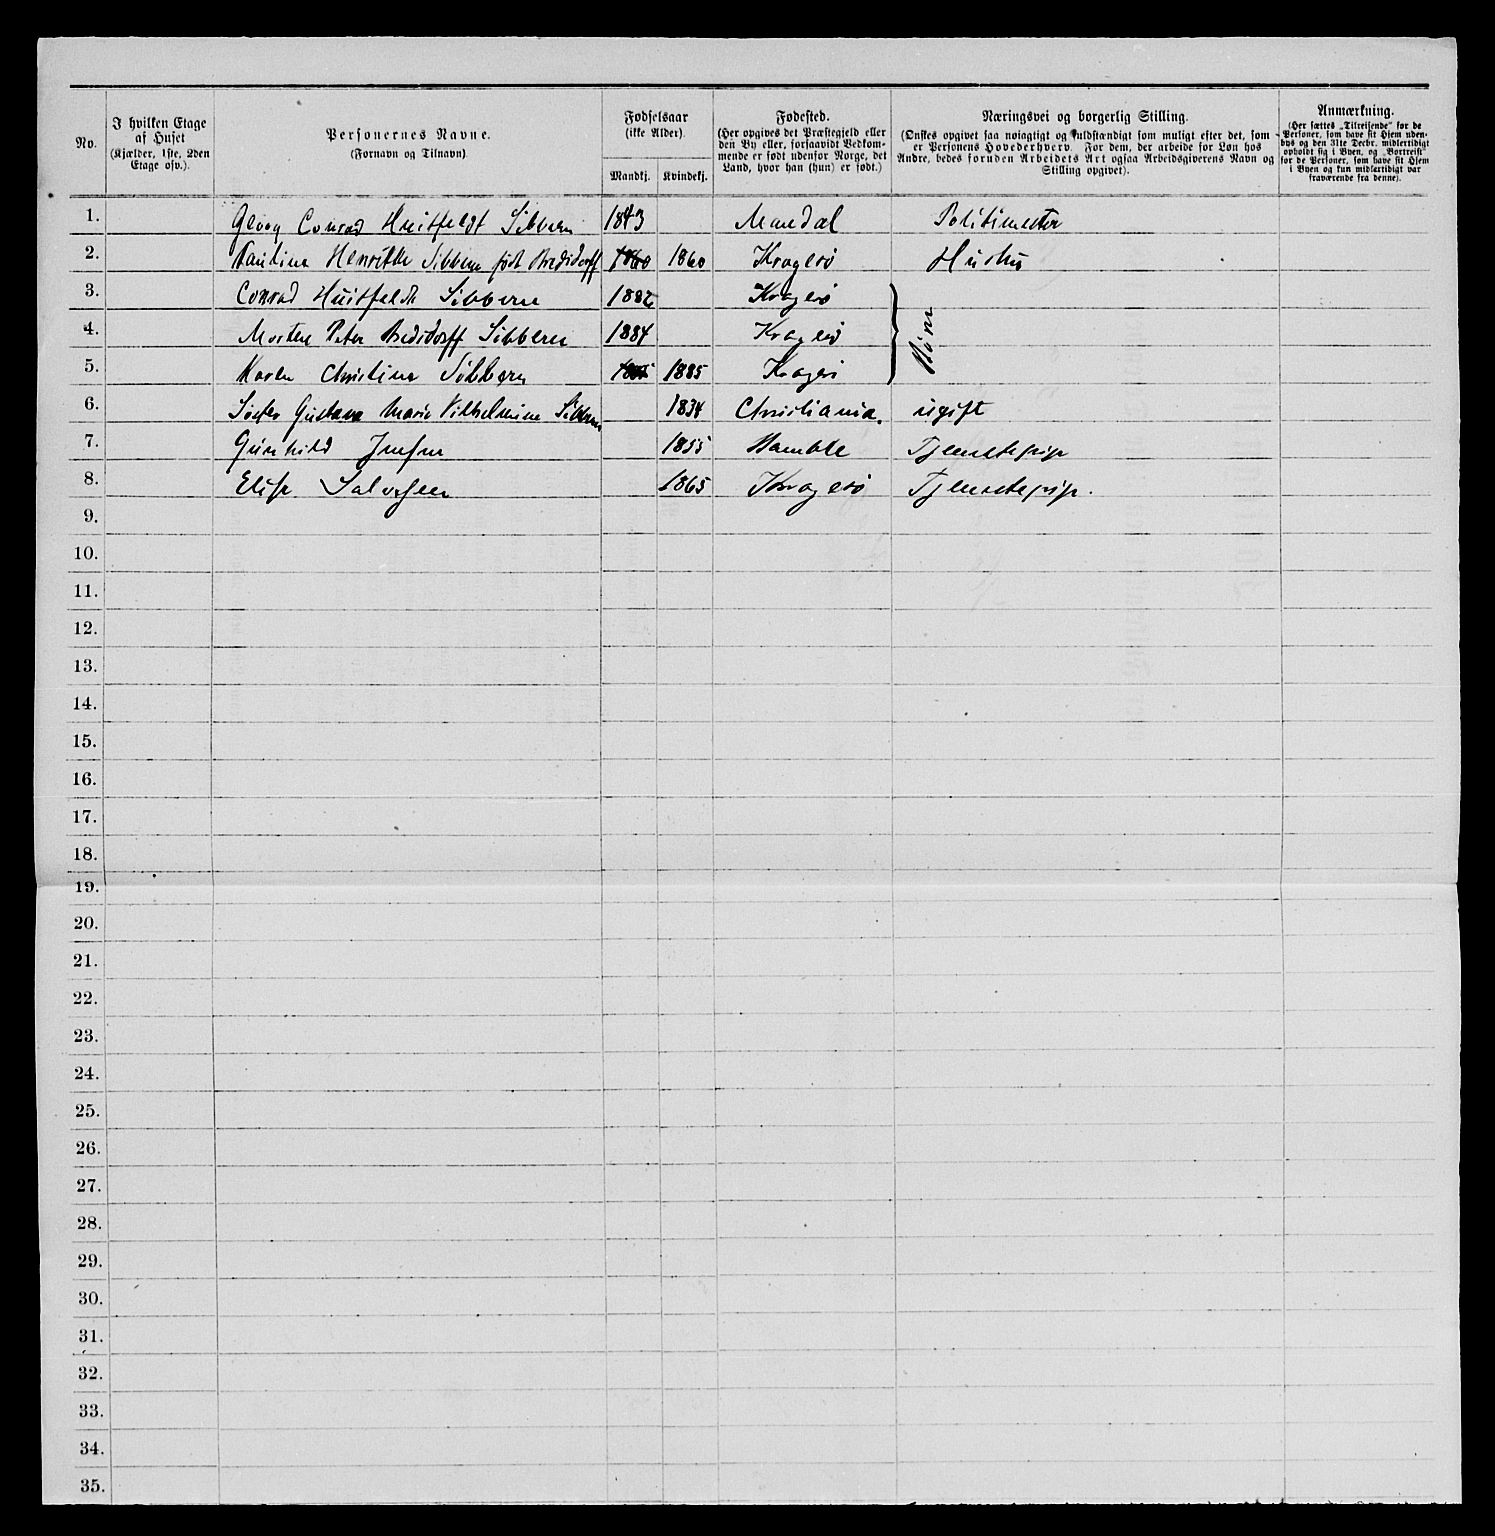 No.
I hvilken Etage af Huset (Kjælder, 1ste, 2den Etage osv.).
Personernes Navne. (Fornavn og Tilnavn)
Fødselsaar (ikke Alder).
Mandkj. Kvindekj.
Fødested. (Her opgives det Præstegjeld eller den By eller, forsaavidt Vedkommende er født udenfor Norge, det Land, hvor han (hun) er født.)
Næringsvei og borgerlig Stilling. (Ønskes opgivet saa nøiagtigt og fuldstændigt som muligt efter det, som er Personens Hovederhverv. For dem, der arbeide for Løn hos Andre, bedes foruden Arbeidets Art ogsaa Arbeidsgiverens Navn og Stilling opgivet).
Anmærkning. (Her sættes „Tilreisende" for de Personer, som have sit Hjem udenbys og den 31te Decbr. midlertidigt opholdt sig i Byen, og „Bortreist" for de Personer, som have sit Hjem i Byen og kun midlertidigt var fraværende fra denne).
1. Georg Conrad Huitfeldt Sibbern 1843 Mandal Politimester
2. Pauline Henrikke Sibbern født Bredsdorff 1860 1860 Kragerø Hustru
3. Conrad Huitfeldt Sibbern 1882 Kragerø
4. Morten Peter Bredsdorff Sibbern 1884 Kragerø Børn
5. Maren Christine Sibbern 1885 1885 Kragerø
6. Søster Gustava Marie Vilhelmine Sibbern 1834 Christiania. ugift
7. Gunhild Jensen 1855 Bamble Tjenestepige
8. Elise Salvesen 1865 Kragerø Tjenestepige.
9.
10.
11.
12.
13.
14.
15.
16.
17.
18.
19.
20.
21.
22.
23.
24.
25.
26.
27.
28.
29.
30.
31.
32.
33.
34.
35.